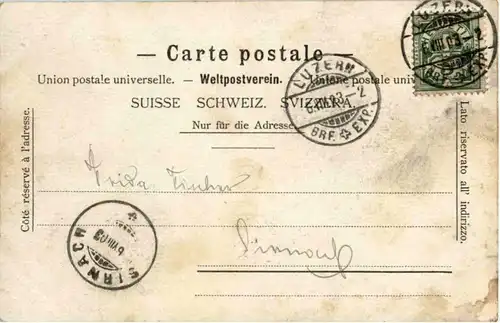 — Carte postale —
Union postale universelle. — Weltpostverein. — Unione postale
SUISSE SCHWEIZ. SVIZZERA.
Nur für die Adresse
Côté réservé à l'adresse.
Lato riservato all' indirizzo.
LUZERN
6.VIII.03 2
BRF. EXP.
LUZERN
6.VIII.03 2
BRF. EXP.
Frida
Sirnach
SIRNACH
6.VIII.03